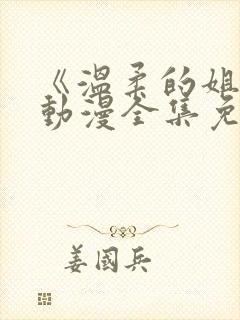 《温柔的姐
动漫全集免
姜国兵